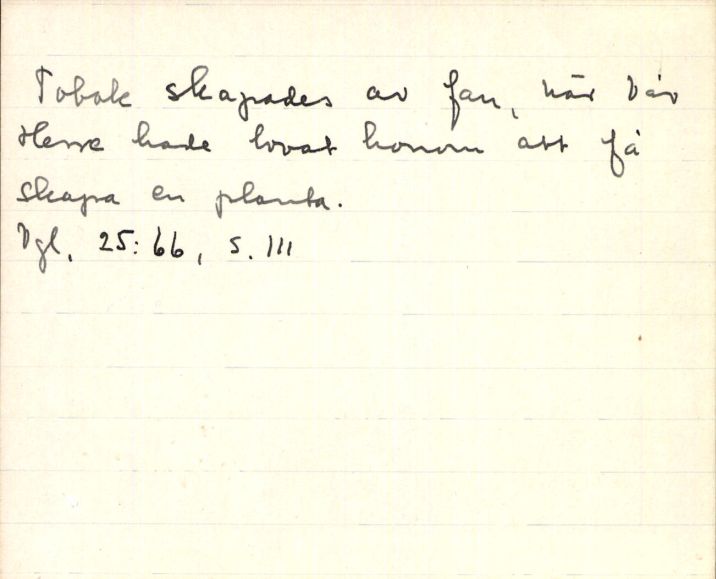 Tobak skapades av fan, när Vår
Herre hade lovat honom att få
skapa en planta.
Vgl, 25:66, s. 111